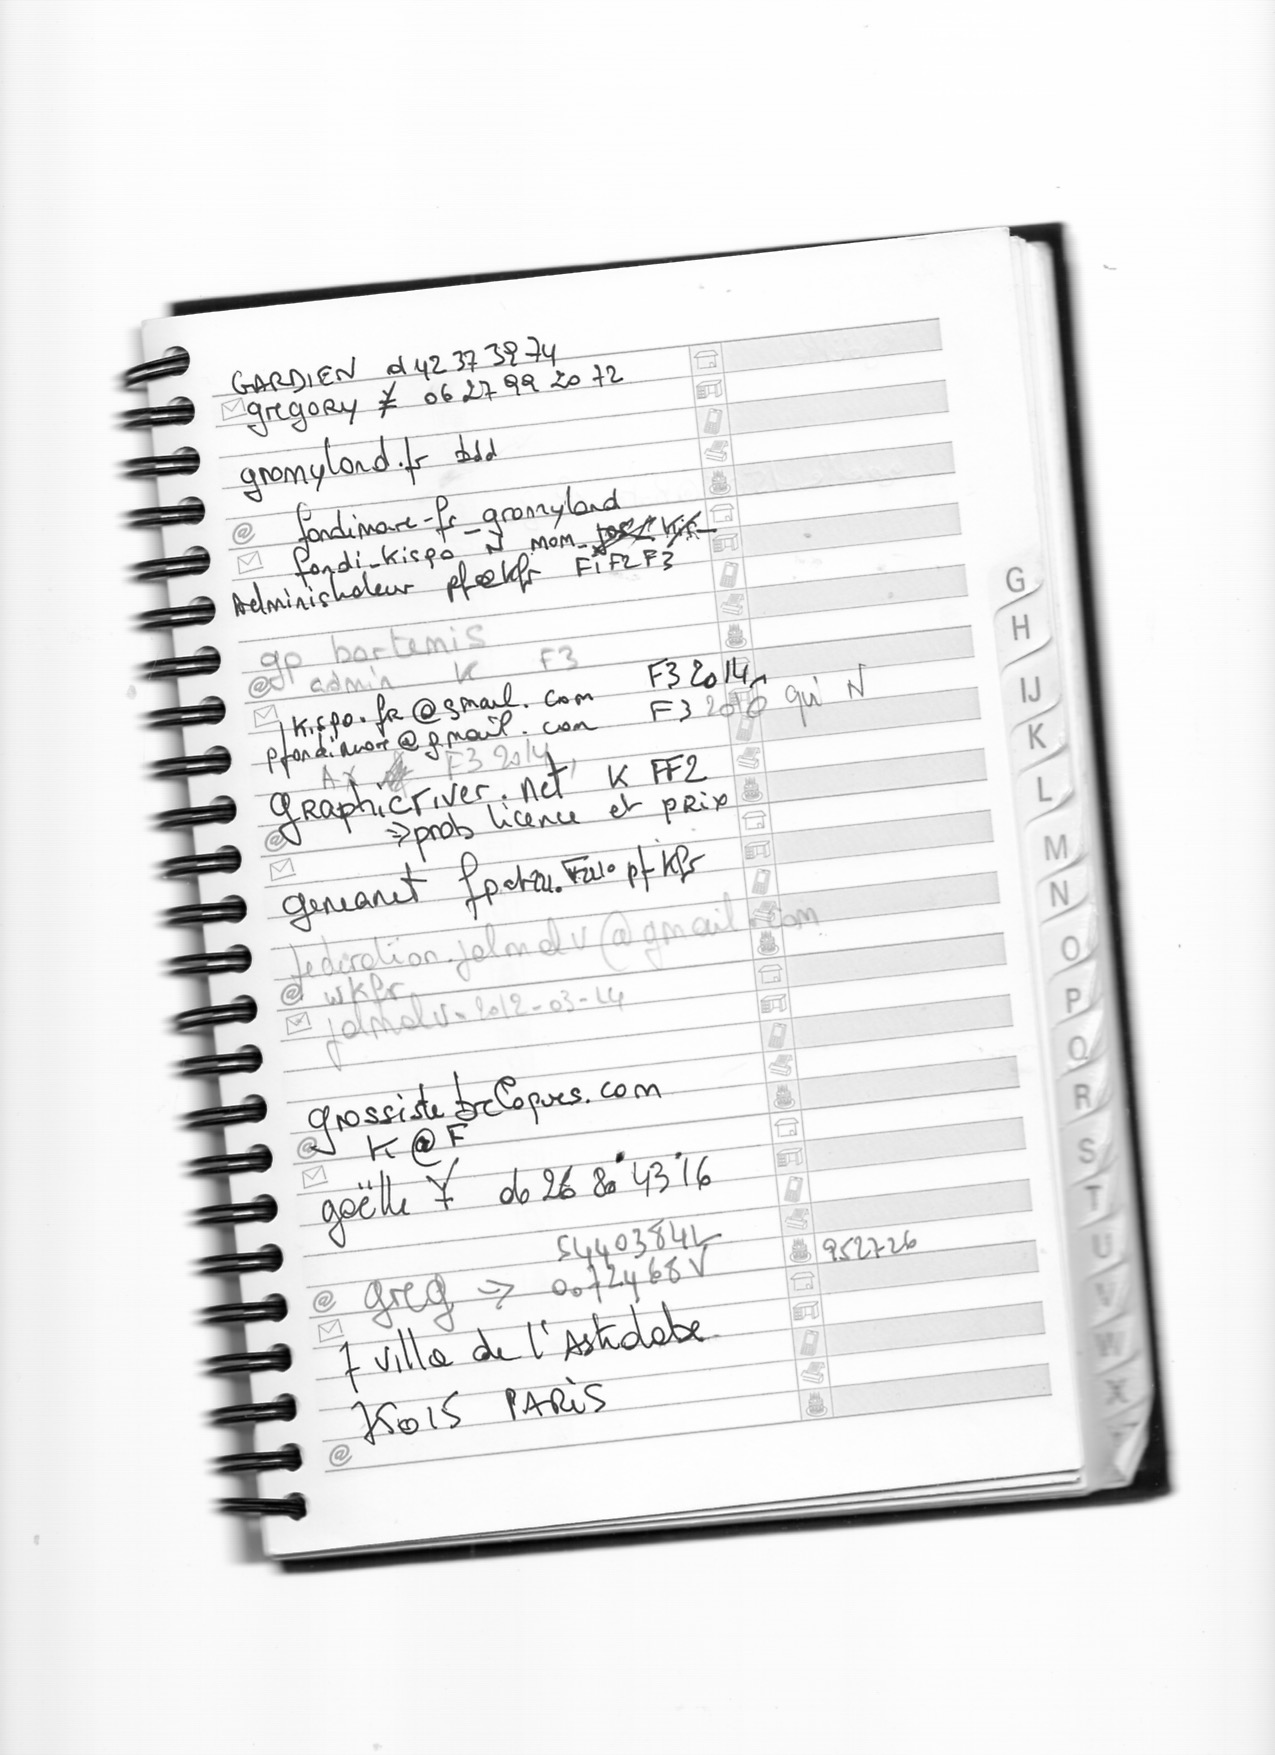 GARDIEN 01 42 37 39 74
gregory ¥ 06 27 99 20 72
gromyland.fr bdd
fondimare-fr_gromyland
fondi_kispo N mom_
Administrateur pf@kfr F1 F2 F3
gp bartemis
admin K F3
kispo.fr@gmail.com F3 2014
pfondimare@gmail.com F3 2016 qui N
AX F3 2014
graphicriver.net K FF2
=> prob licence et prix
geneanet pf kfr
federation.jalmalv@gmail.com
wkfr
jalmalv-2012-03-14
grossiste .com
K @ F
gaëlle ¥ 06 26 80 43 16
54403841
952726
greg => 0072468V
7 villa de l'Astrolabe
75015 PARIS
G
H
IJ
K
L
M
N
O
P
Q
R
S
T
U
V
W
X